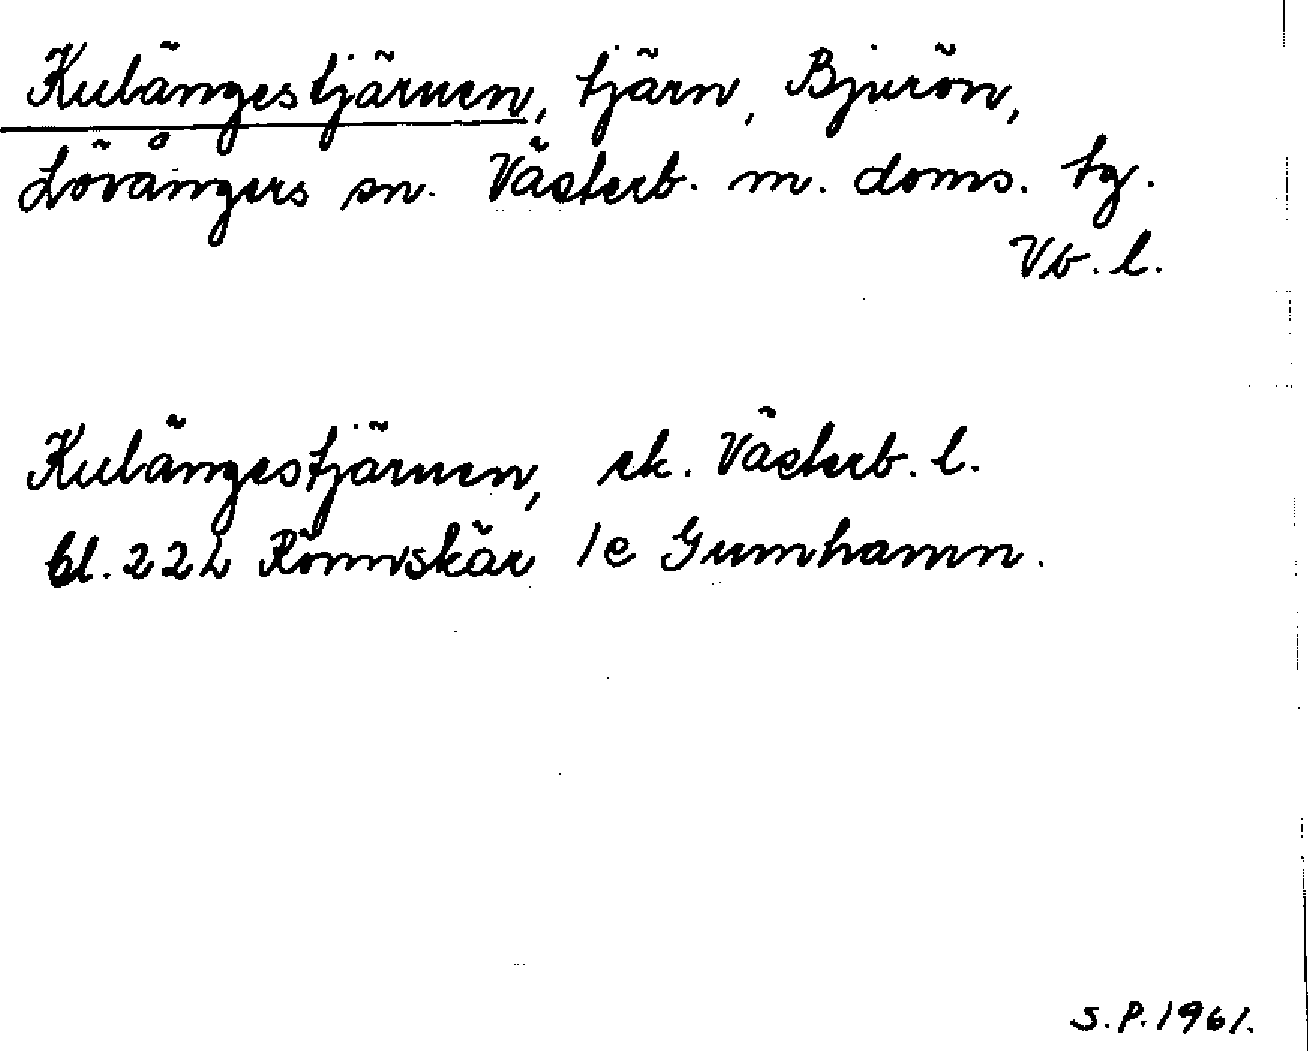 Kulängestjärnen, tjärn, Bjurön,
Lövångers sn. Västerb. m. doms. tg.
Vb. l.
Kulängestjärnen, ek. Västerb. l.
bl. 22L Rönnskär 1e Gumhamn.
S.P. 1961.